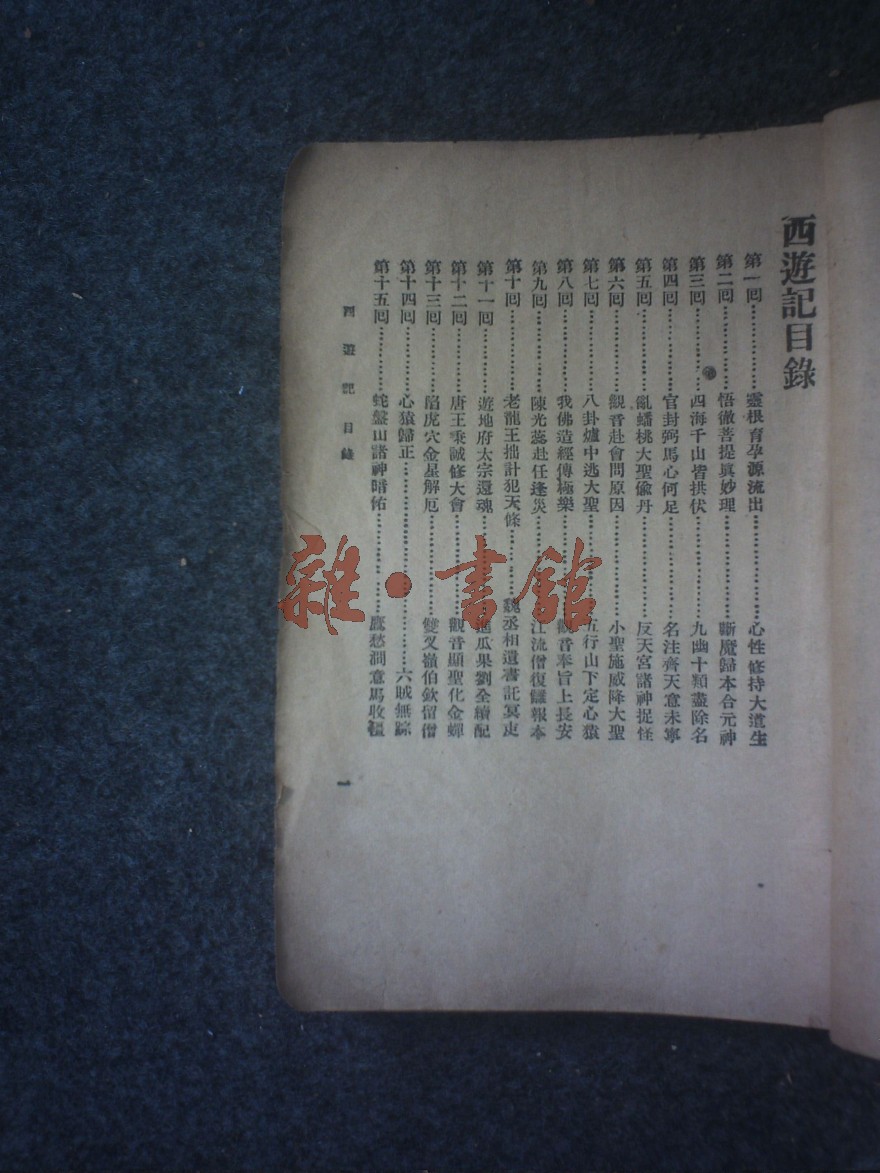 西遊記目錄
第一回……靈根育孕源流出……心性修持大道生
第二回……悟徹菩提眞妙理……斷魔歸本合元神
第三回……四海千山皆拱伏……九幽十類盡除名
第四回……官封弼馬心何足……名注齊天意未寧
第五回……亂蟠桃大聖偸丹……反天宮諸神捉怪
第六回……觀音赴會問原因……小聖施威降大聖
第七回……八卦爐中逃大聖……五行山下定心猿
第八回……我佛造經傳極樂……觀音奉旨上長安
第九回……陳光蕊赴任逢災……江流僧復讎報本
第十回……老龍王拙計犯天條……魏丞相遺書託冥吏
第十一回……遊地府太宗還魂……進瓜果劉全續配
第十二回……唐王秉誠修大會……觀音顯聖化金蟬
第十三回……陷虎穴金星解厄……雙叉嶺伯欽留僧
第十四回……心猿歸正……六賊無踪
第十五回……蛇盤山諸神暗佑……鷹愁澗意馬收韁
西遊記目錄
一
雜·書館